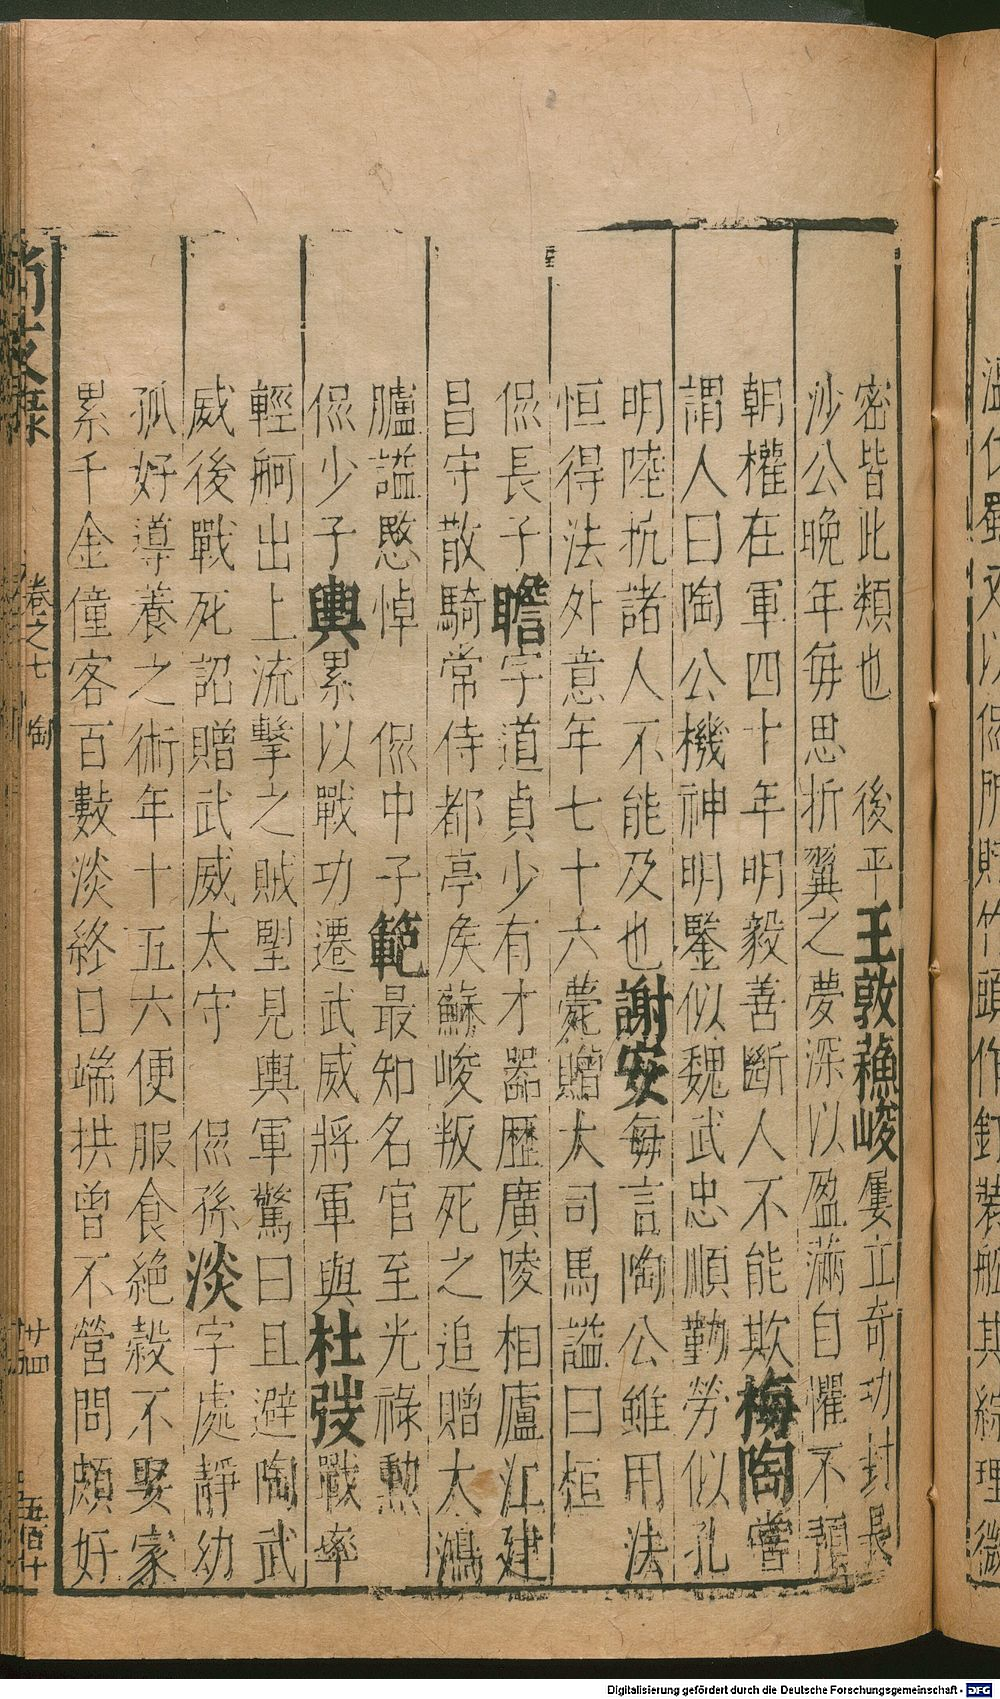 密皆此類也　後平王敦蘓峻屢立奇功封長
沙公晚年每思折翼之夢深以盈滿自懼不預
朝權在軍四十年明毅善斷人不能欺梅陶嘗
謂人曰陶公機神明鑒似魏武忠順勤勞似孔
明陸抗諸人不能及也謝安每言陶公雖用法
恒得法外意年七十六薨贈大司馬謚曰桓
侃長子瞻字道貞少有才器歷廣陵相廬江建
昌守散騎常侍都亭矦蘇峻叛死之追贈大鴻
臚謚愍悼　侃中子範最知名官至光祿勲
侃少子輿累以戰功遷武威將軍與杜弢戰率
輕舸出上流擊之賊塱見輿軍驚曰且避陶武
威後戰死詔贈武威太守　侃孫淡字處靜幼
孤好導養之術年十五六便服食絕穀不娶家
累千金僮客百數淡終日端拱曾不營問頗好
尚友錄　卷之七　陶　五百廿
溫伐蜀又以侃所貯竹頭作釘裝船其綜理微
Digitalisierung gefördert durch die Deutsche Forschungsgemeinschaft - DFG